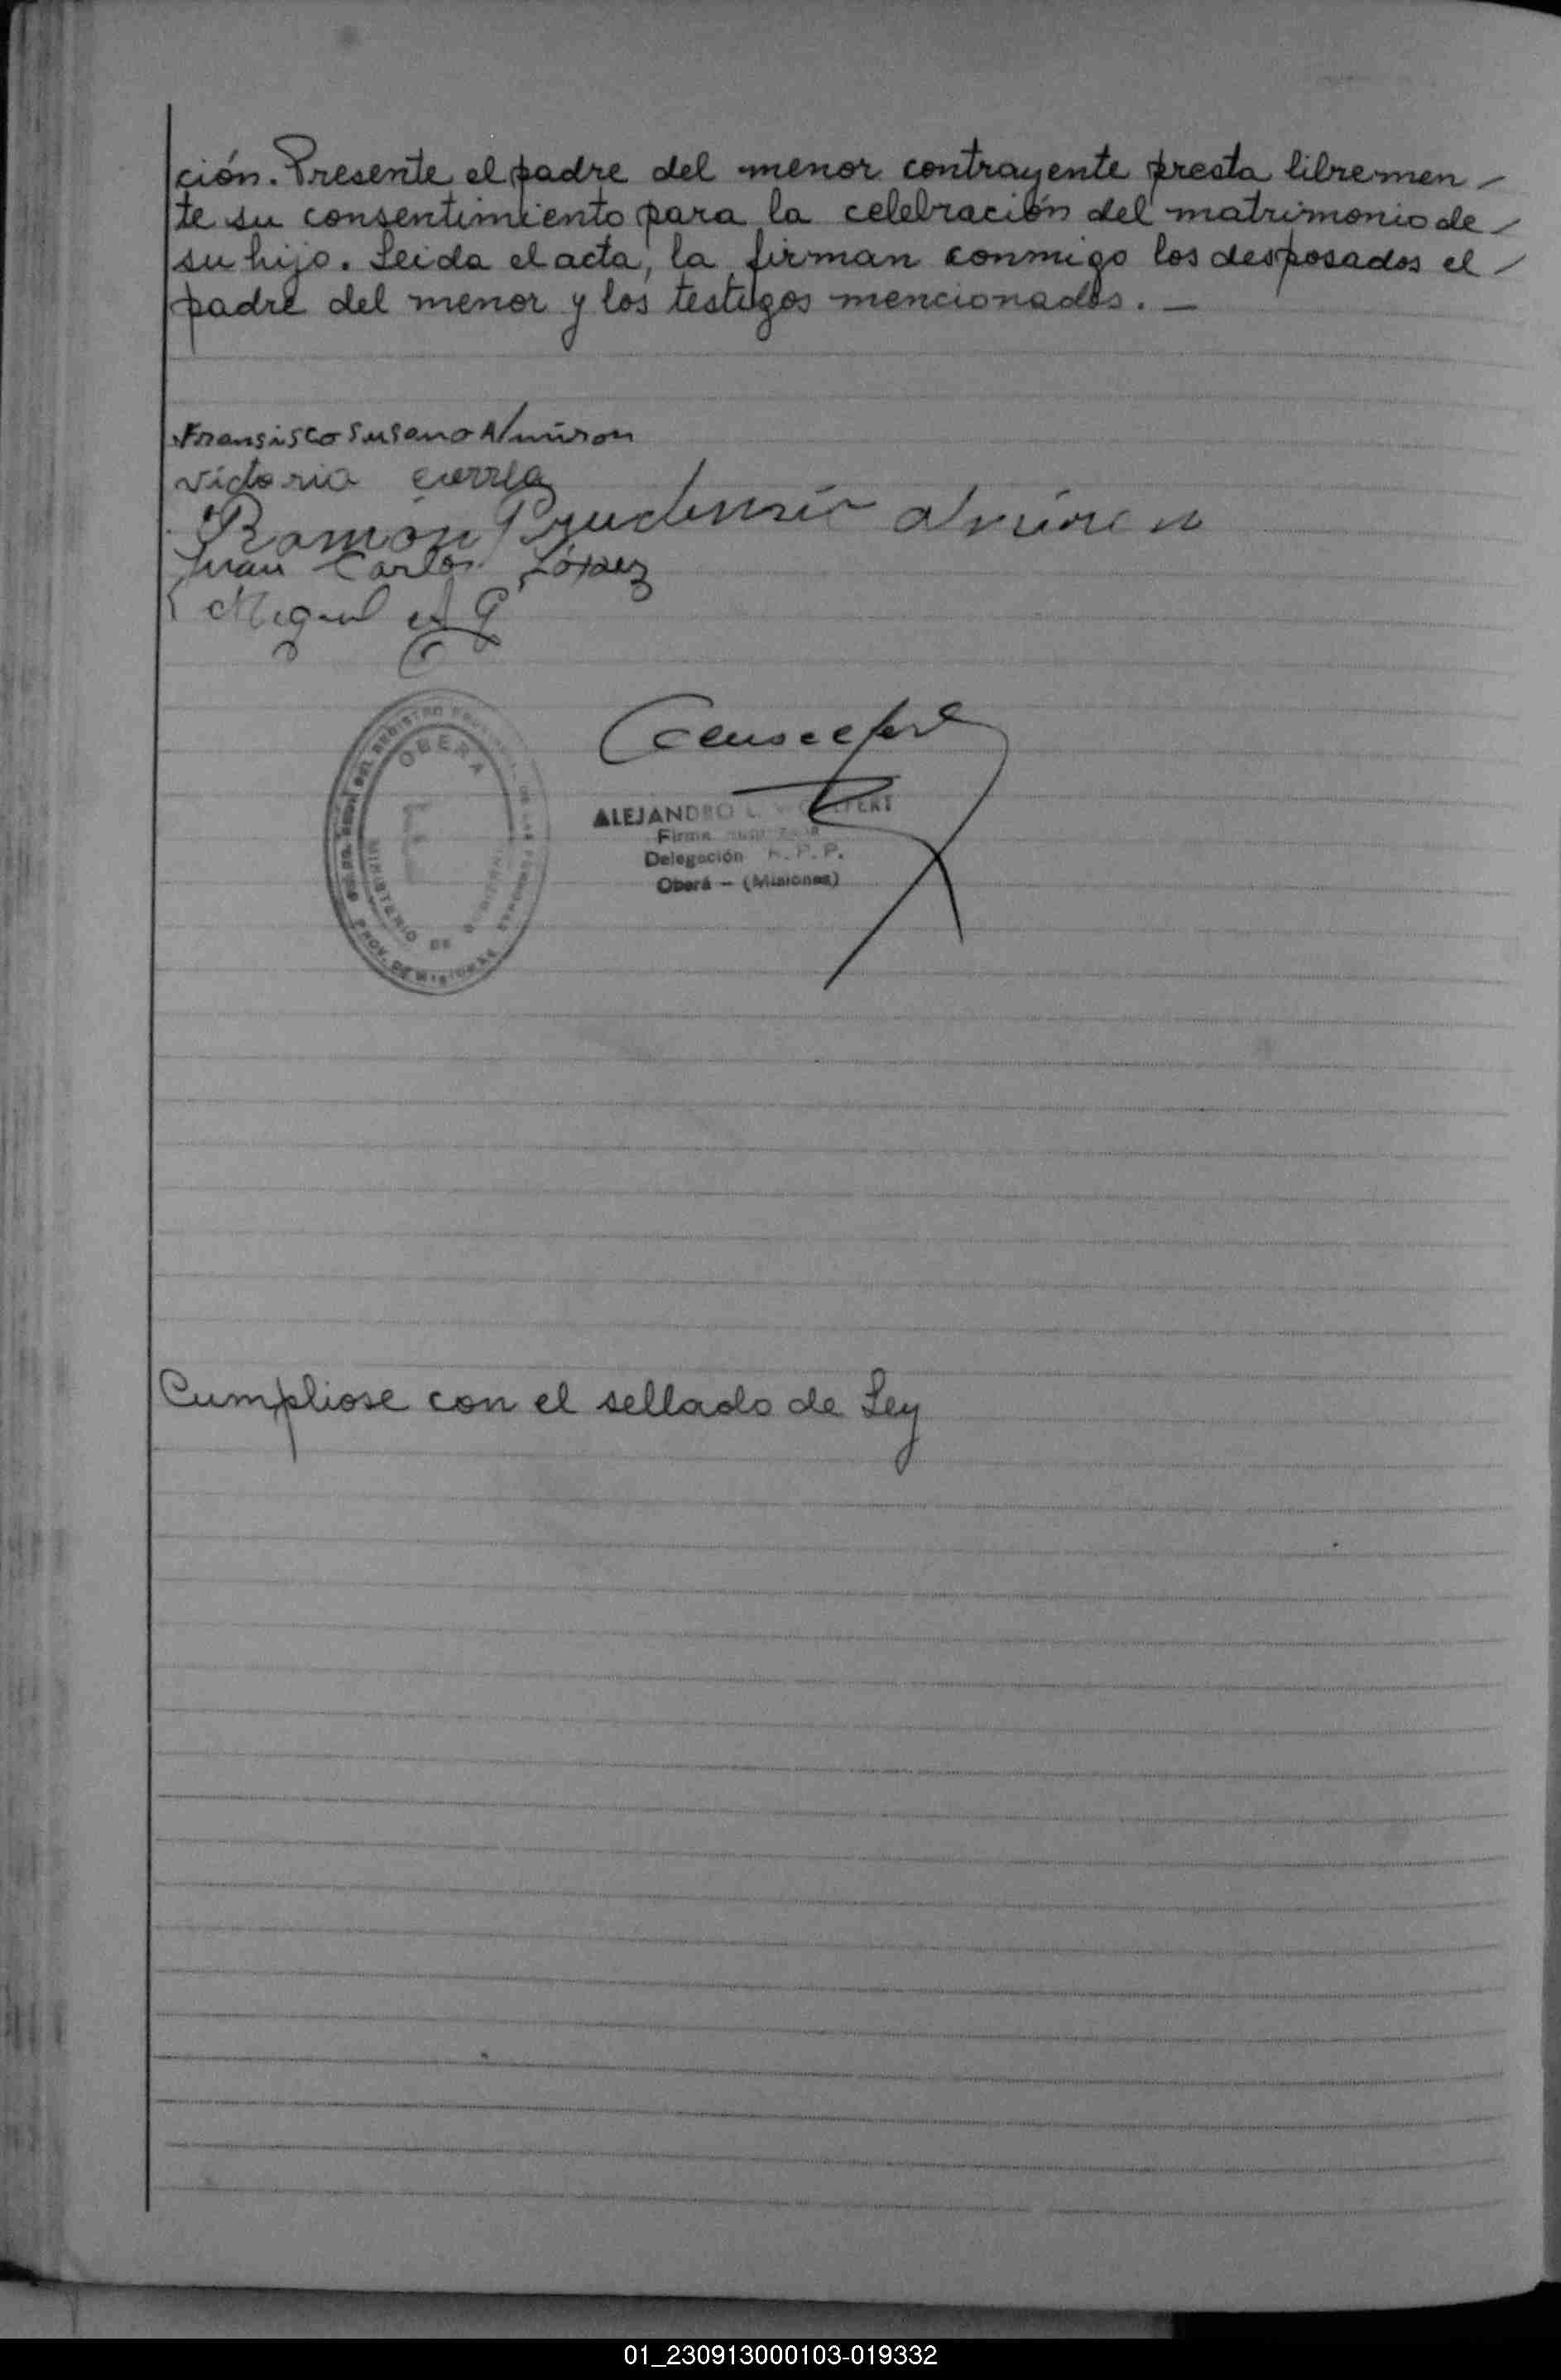 ción. Presente el padre del menor contrayente presta libremen-
te su consentimiento para la celebración del matrimonio de-
su hijo. Leida el acta, la firman conmigo los desposados el-
padre del menor y los testigos mencionados.-
Fransisco Susano Almiron
victoria correa
Ramón Prudensio almiron
Juan Carlos López
Miguel A G
OBERA
MINISTERIO DE
PROV. DE MISIONES
ALEJANDRO L.
Firma
Delegación R. P. P.
Oberá - (Misiones)
Cumpliose con el sellado de Ley
01_230913000103-019332